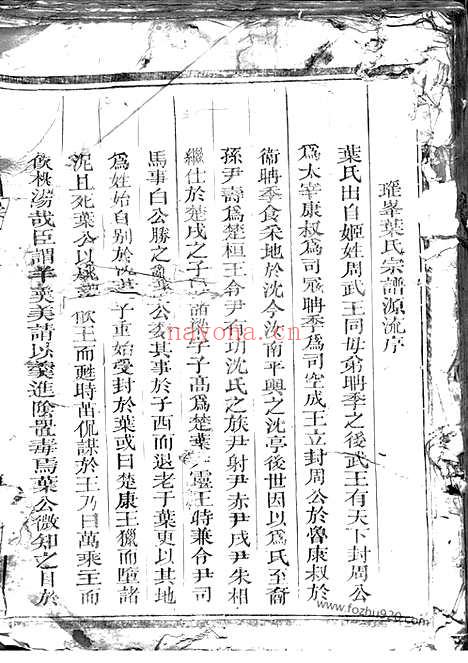 瓘峯葉氏宗譜源流序
葉氏出自姬姓周武王同母弟聃季之後武王有天下封周公
爲太宰康叔爲司冦聃季爲司空成王立封周公於魯康叔於
衞聃季食采地於沈今汝南平輿之沈亭後世因以爲氏至裔
孫尹壽爲楚桓王令尹有功沈氏之族尹射尹赤尹戌尹朱相
繼仕於楚戌之子 諸梁字子高爲楚葉 靈王時兼令尹司
馬事白公勝之亂葉公委其事於子西而退老于葉更以其地
爲姓始自别於沈 子重始受封於葉或曰楚康王獵而墮諸
泥且死葉公以 飲王而甦時苗侃謀於王乃曰萬乘王而
飲桃湯哉臣謂羊羹美請以羹進陰置毒焉葉公微知之目於
nayona.cn
www.fozhu920.com